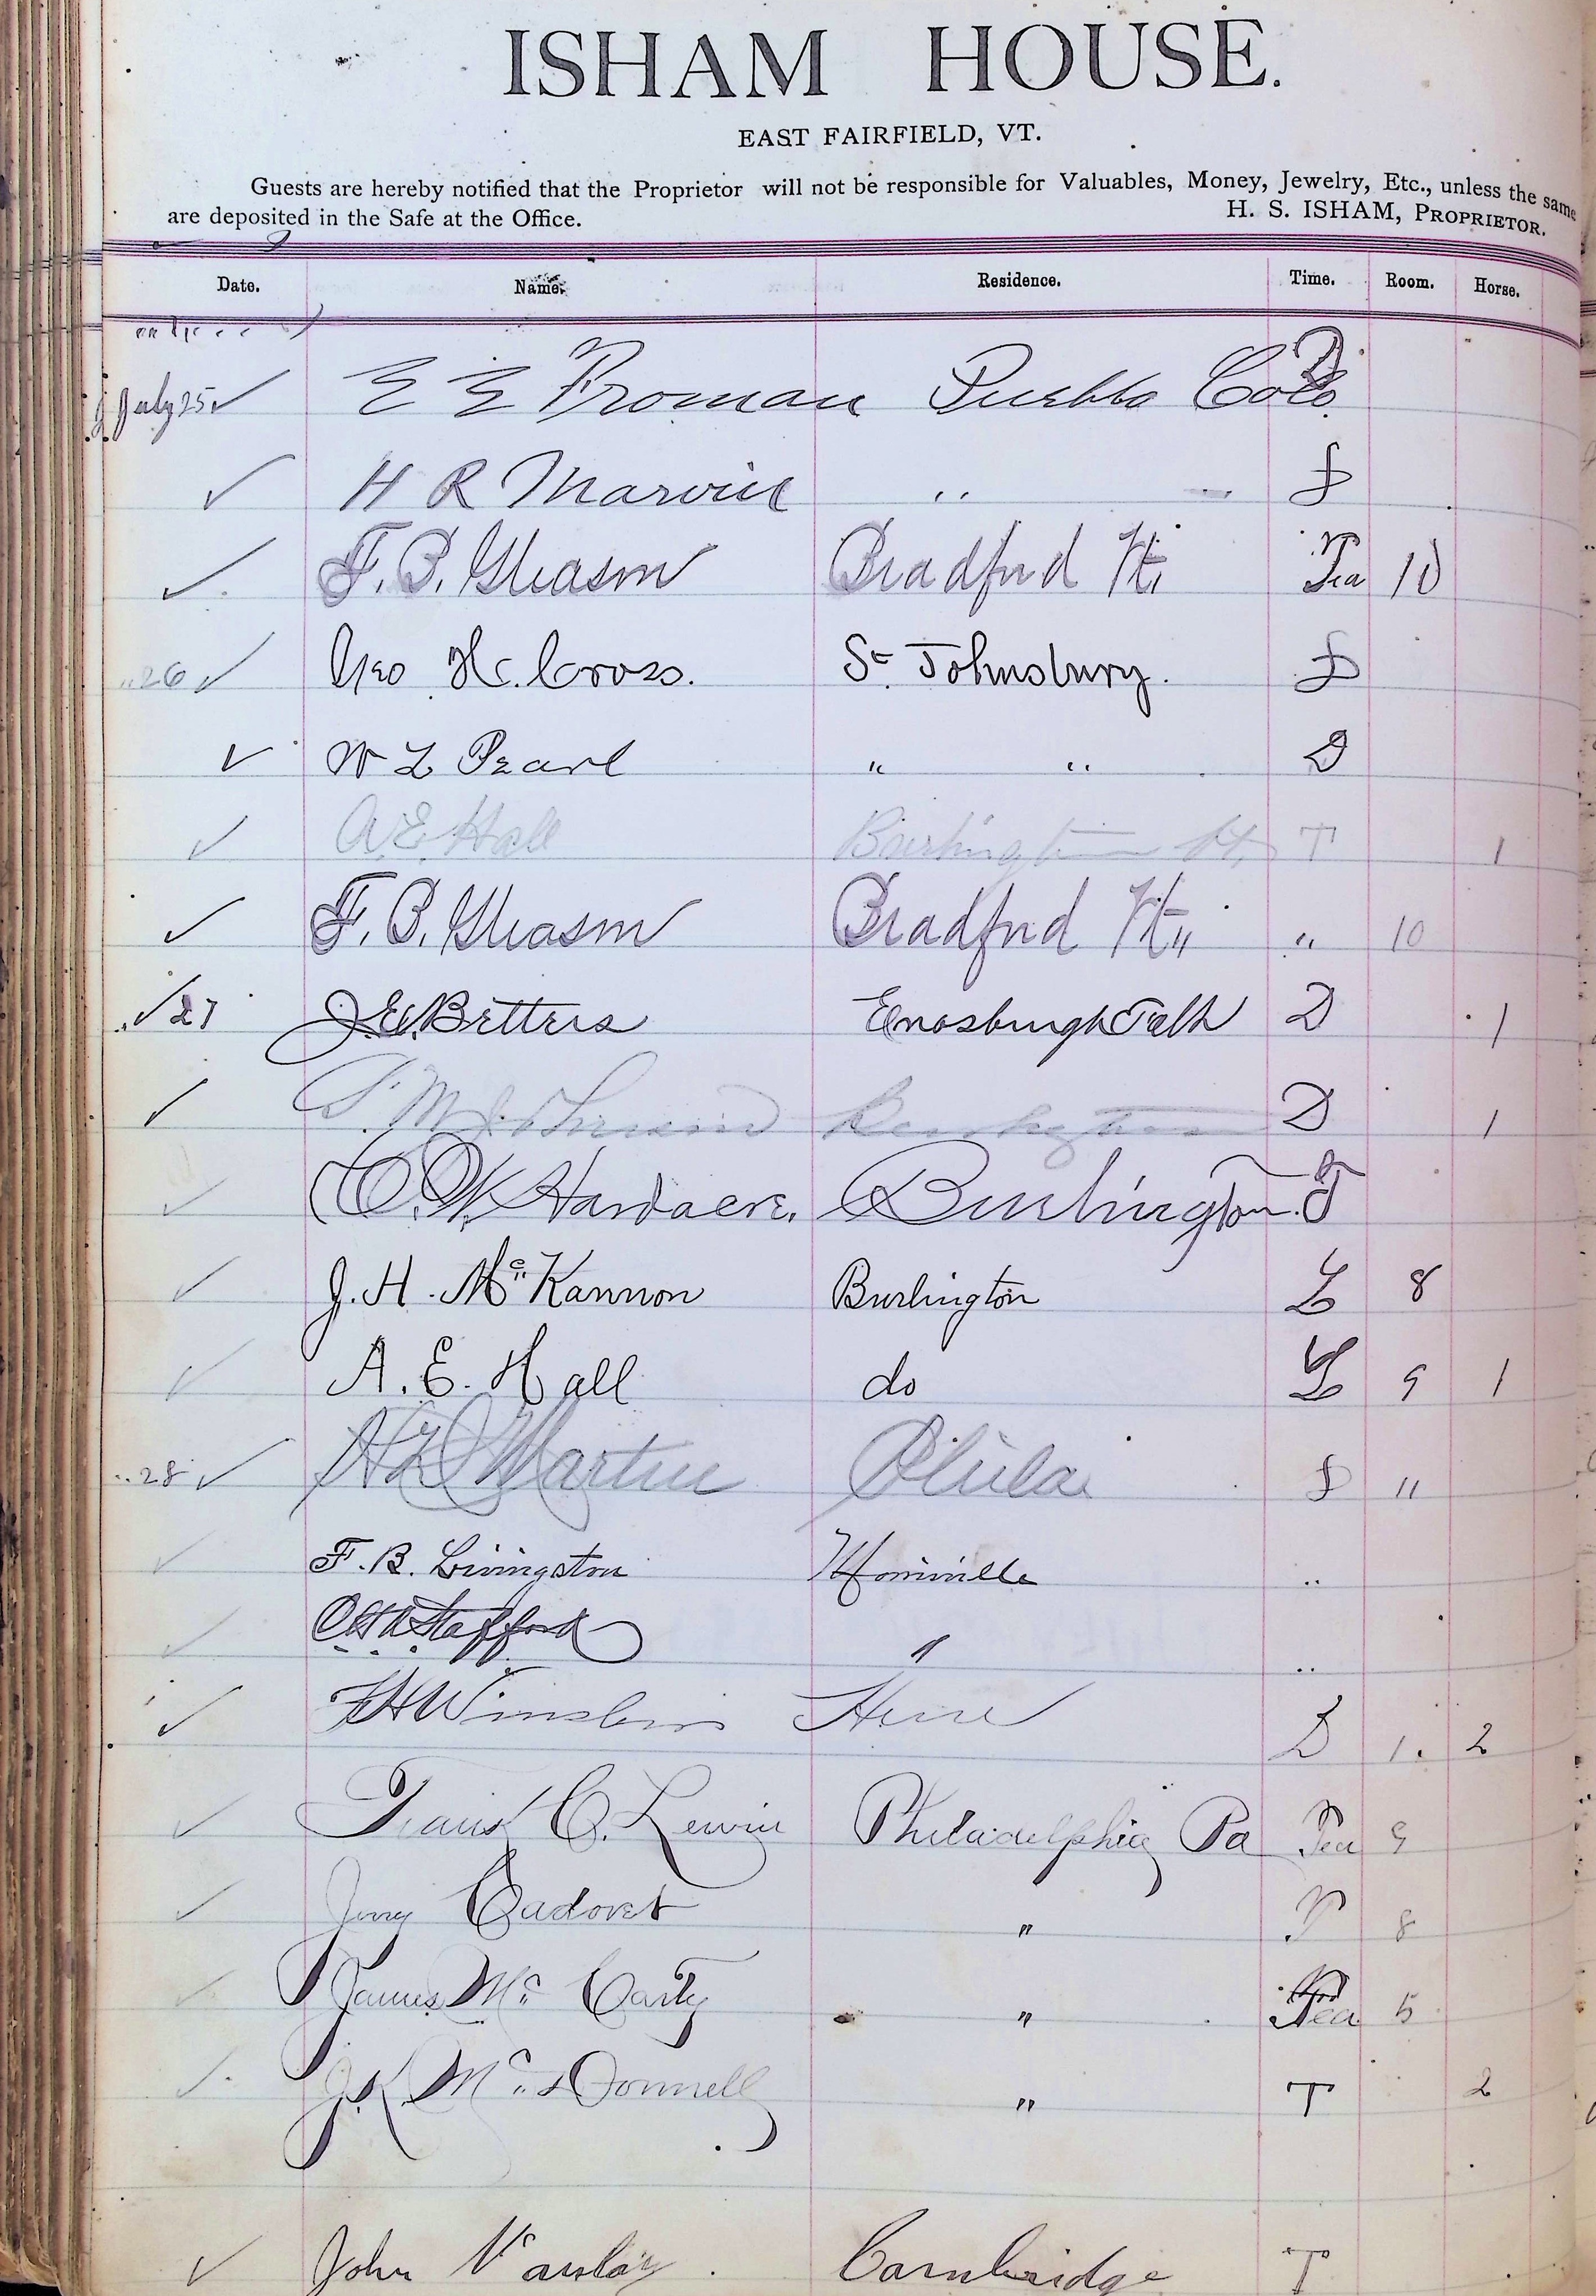 ISHAM HOUSE.
EAST FAIRFIELD, VT.
Guests are hereby notified that the Proprietor will not be responsible for Valuables, Money, Jewelry, Etc., unless the same
are deposited in the Safe at the Office. H. S. ISHAM, PROPRIETOR.
Date. Name. Residence. Time. Room. Horse.
July 25 ✓ E E Froman Pueblo Colo D
✓ H R Marvin " " S
✓ F. B. Gleason Bradford Vt. Tea 10
"26 ✓ Geo H. Cross. St. Johnsbury. D
✓ W L Pearl " " D
✓ A. E. Hall Burlington Vt. T 1
✓ F. B. Gleason Bradford Vt. " 10
" ✓ 27 J. E. Betters Enosburgh Falls D 1
✓ Burlington D 1
✓ C. W. Hardacre. Burlington. T
✓ J. H. Mc Kannon Burlington L 8
✓ A. E. Hall do L 9 1
"28 ✓ Martin Phila S 11
✓ F. B. Livingston Morrisville "
✓ Stafford " "
✓ Here D 1. 2
✓ Frank C. Lewin Philadelphia Pa Tea 9
✓ Jerry Cadoret " T 8
✓ James Mc Carty " Tea 5
✓ J. K. Mc Donnell " T 2
✓ John Cambridge T